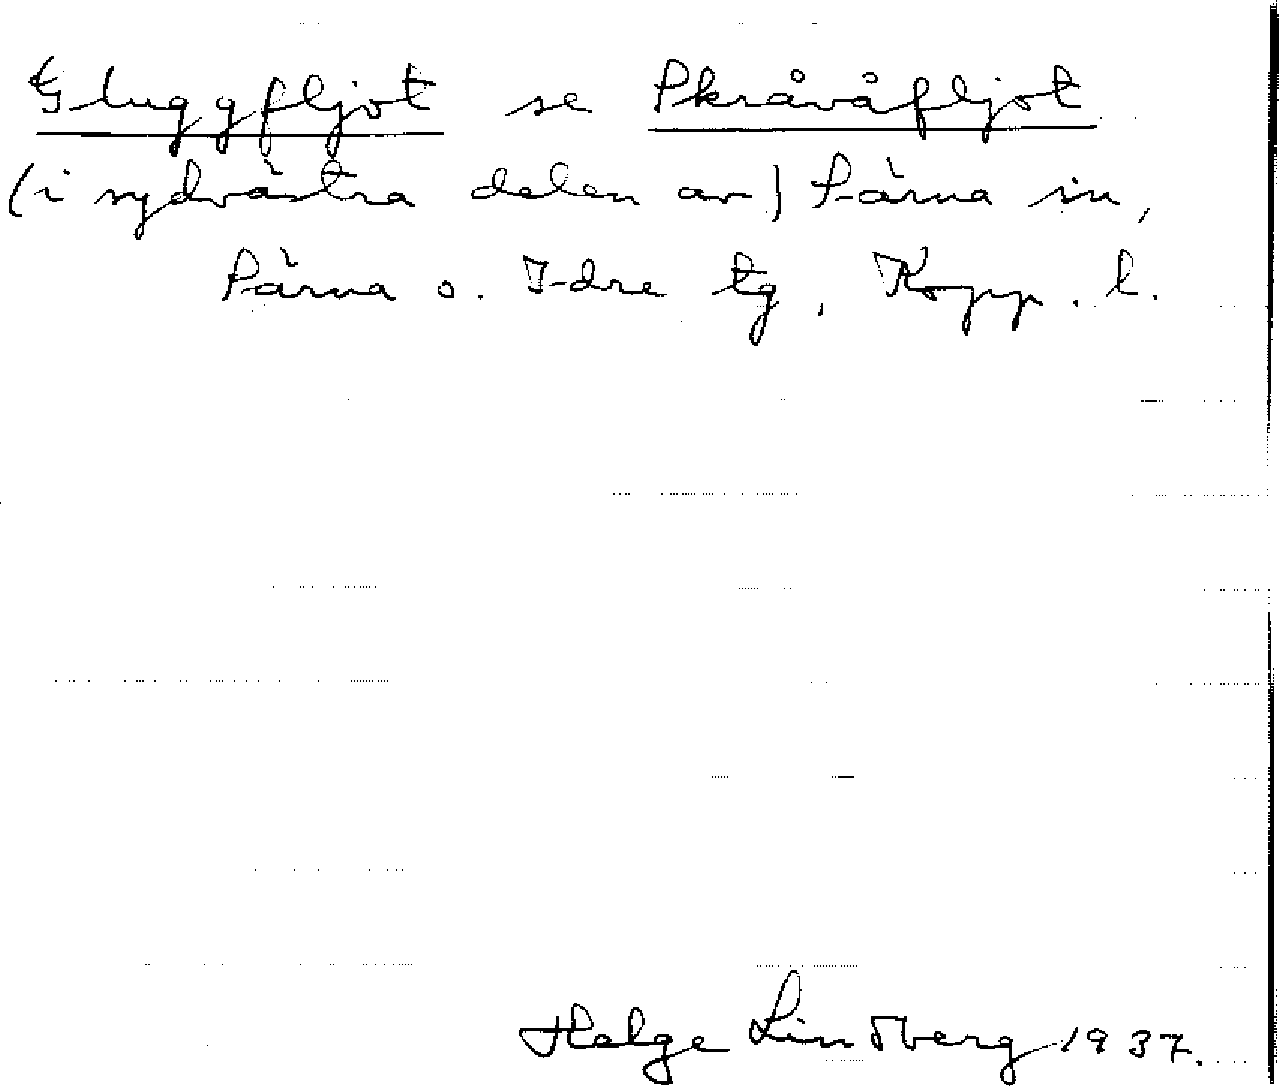 Gluggfljot se Skråvåfljot
(i sydvästra delen av) Särna sn,
Särna o. Idre tg, Kopp. l.
Helge Lindberg 1937.